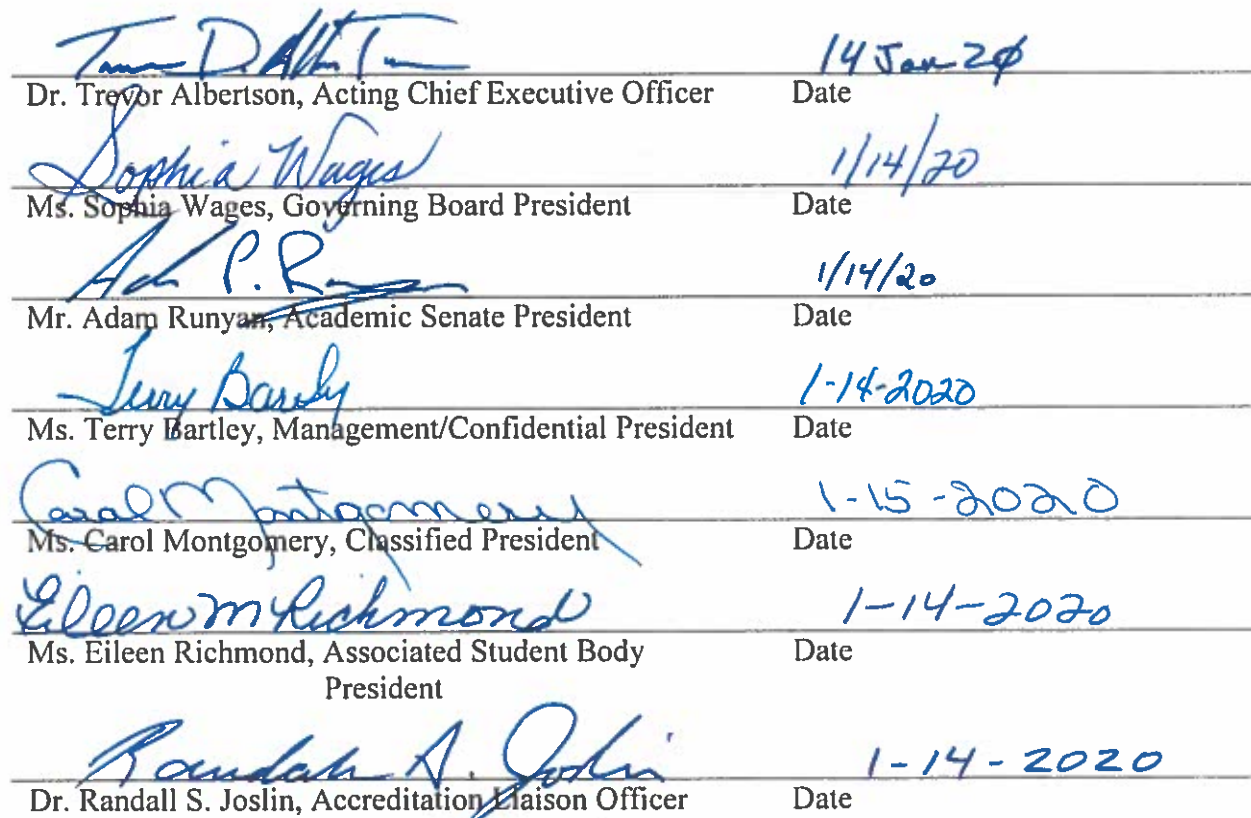 T D. Albertson 14 Jan 20
Dr. Trevor Albertson, Acting Chief Executive Officer Date
Sophia Wages 1/14/20
Ms. Sophia Wages, Governing Board President Date
Adam P. R 1/14/20
Mr. Adam Runyan, Academic Senate President Date
Terry Bartley 1-14-2020
Ms. Terry Bartley, Management/Confidential President Date
Carol Montgomery 1-15-2020
Ms. Carol Montgomery, Classified President Date
Eileen M Richmond 1-14-2020
Ms. Eileen Richmond, Associated Student Body Date
President
Randall S. Joslin 1-14-2020
Dr. Randall S. Joslin, Accreditation Liaison Officer Date